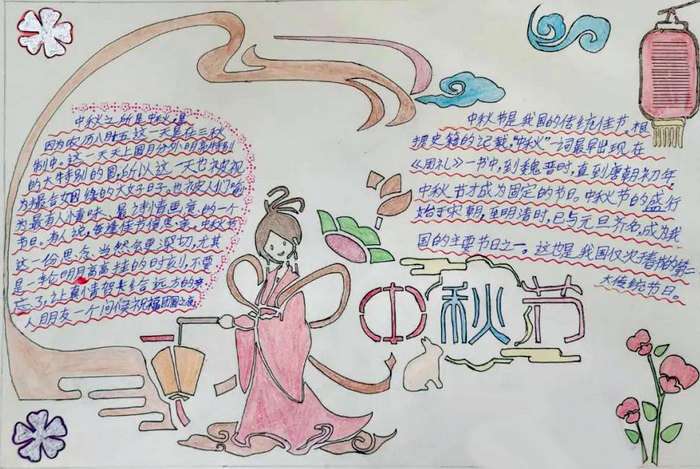 中秋之所是中秋,是
因为农历八月十五这一天是在三秋
制中。这一天天上圆月分外明亮特别
的大特别的圆,所以这一天也被视
为撮合姻缘的大好日子,也被人们喻
为最有人小意味、最
节日。有人说,每逢佳节倍思亲,中秋节
这一份思念当然会更深切,尤其
是一轮明月高高挂的时刻,不要
忘了,让真情贺卡给远方的亲
人朋友一个问候祝福团圆之夜
中秋节是我国的传统佳节。根
据史籍的记载“中秋”一词最早出现在
《周礼》一书中,到魏晋时,直到唐朝初年,
中秋节才成为固定的节日。中秋节的盛行
始于宋朝,至明清时,已与元旦齐名,成为我
国的主要节日之一。这也是我国仅次于春节的第
大传统节日。
中秋节